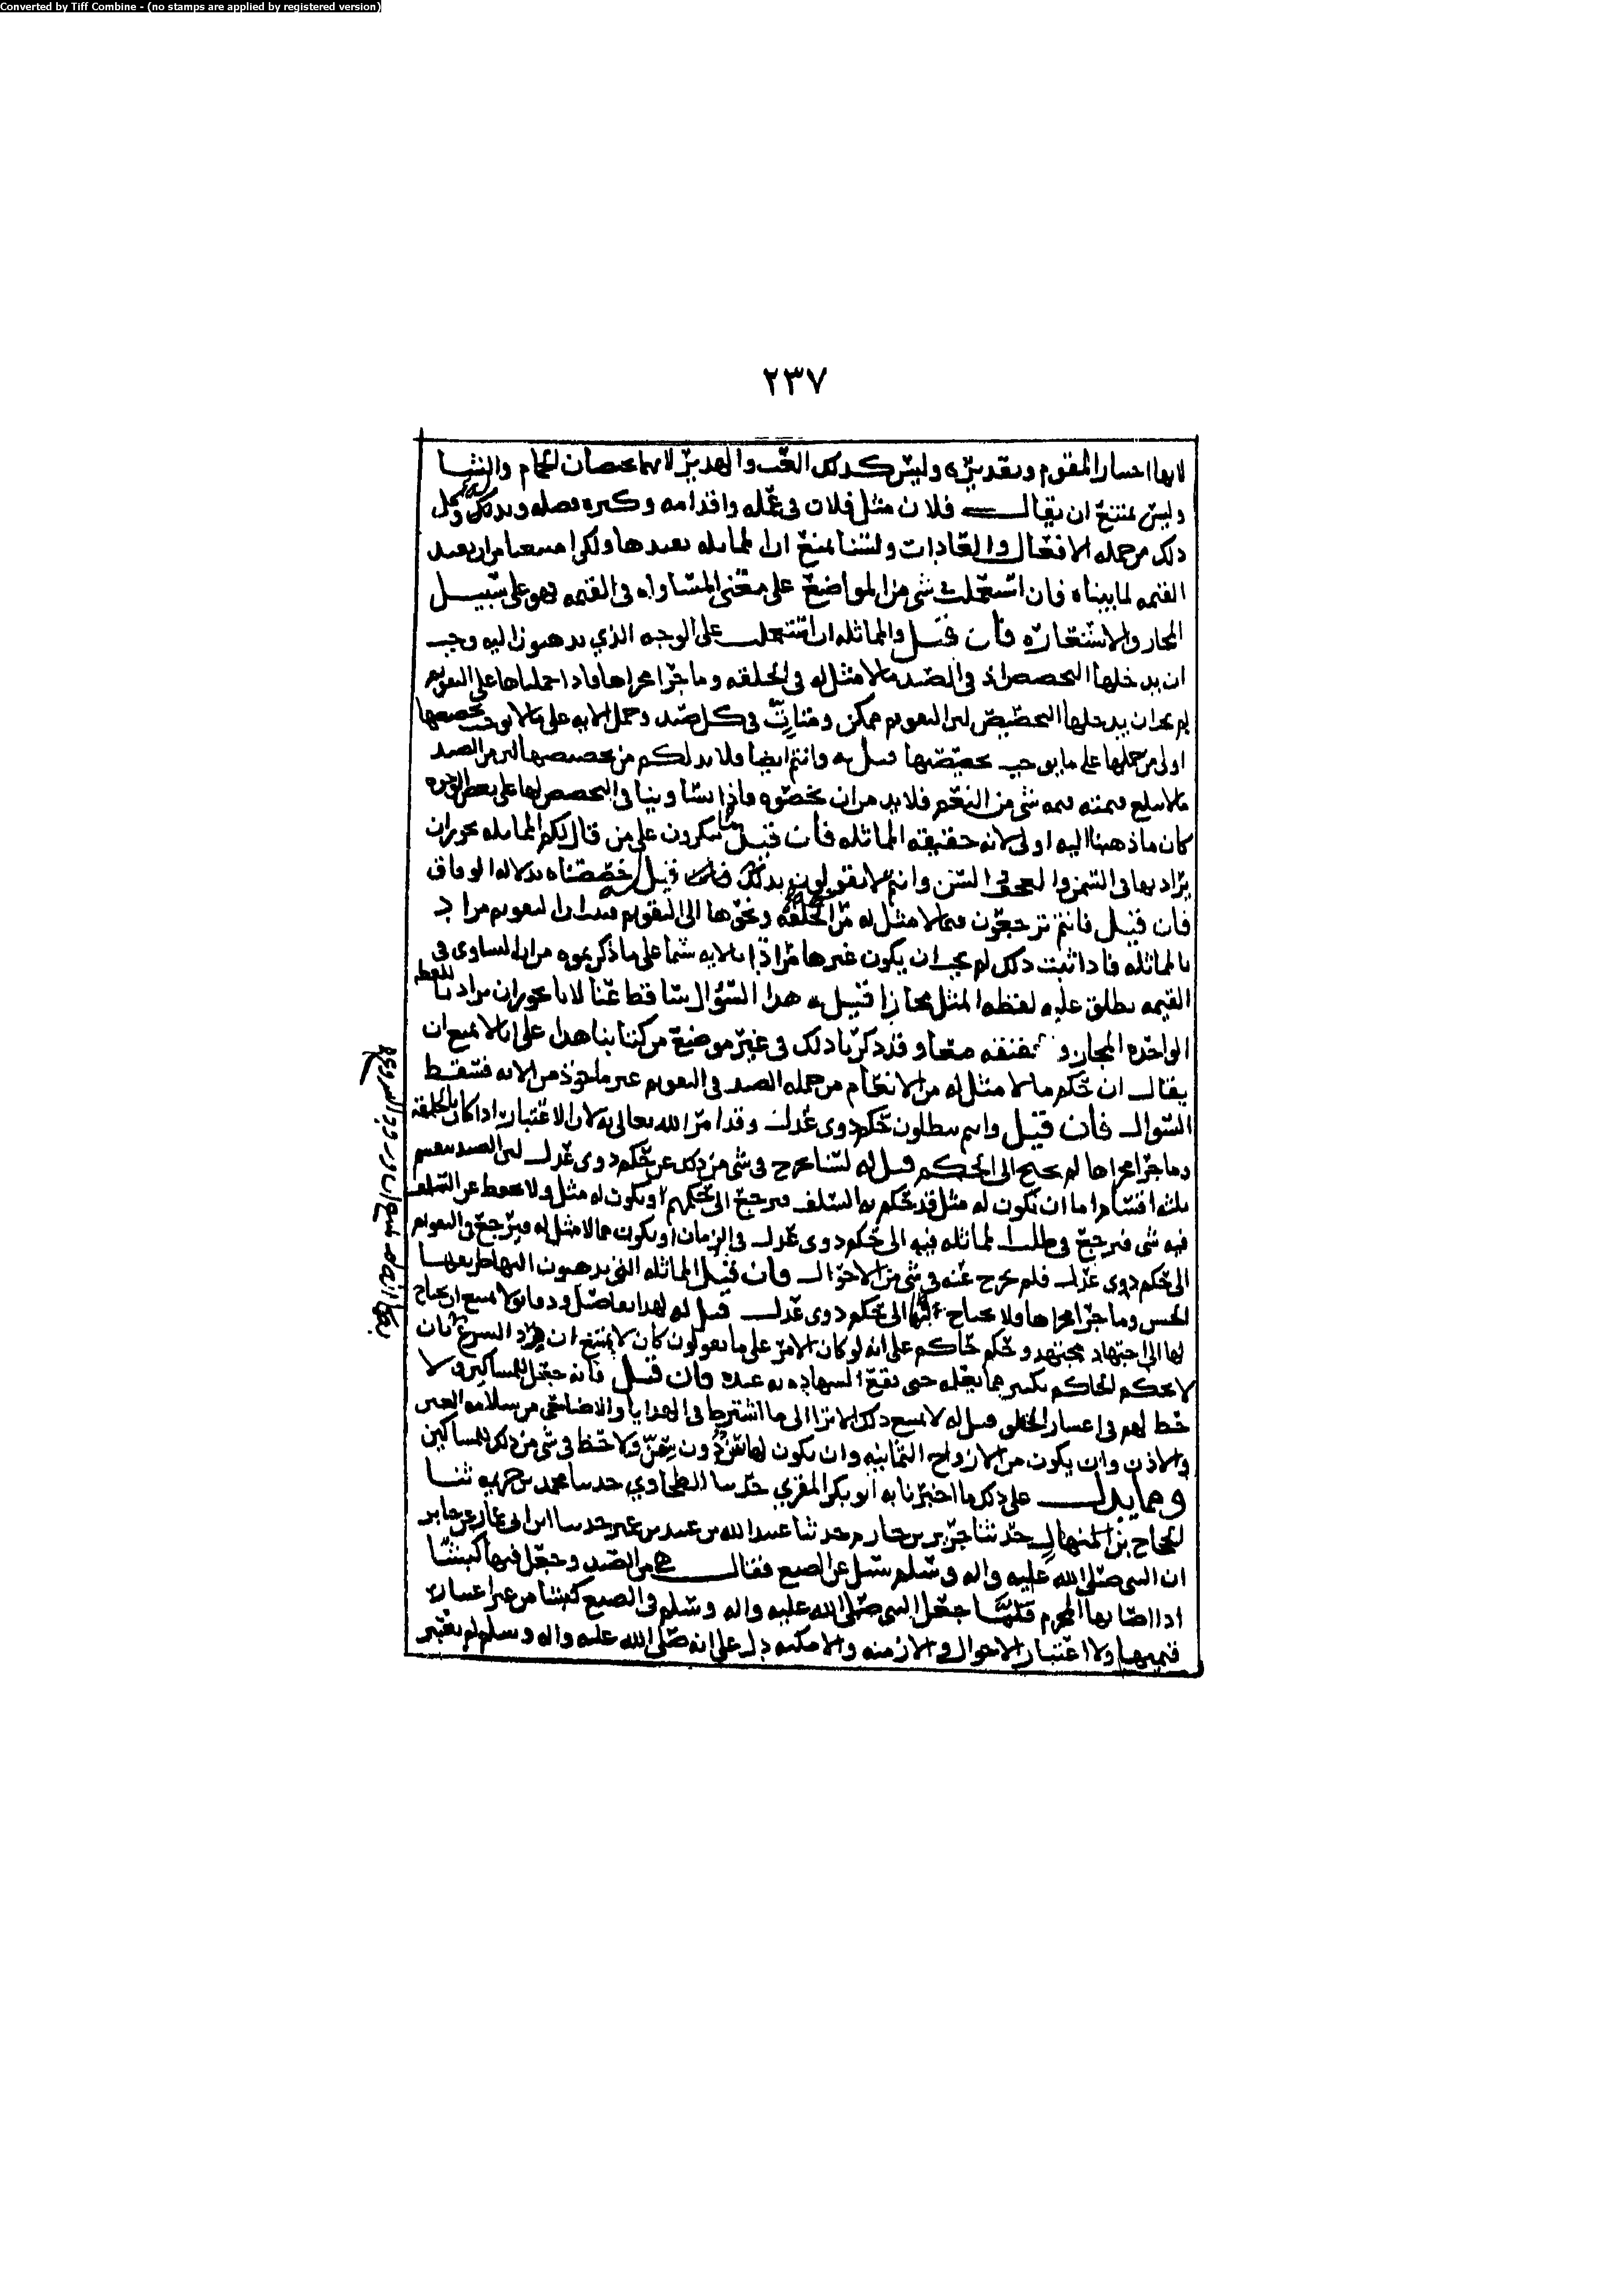 Converted by Tiff Combine - (no stamps are applied by registered version)
٢٣٧
لانها اخسار المقوم وتقديره وليس كذلك العب والهدير لانهما يخصان الحمام والشا
وليس بمتنع ان يقال فلان مثل فلان في عمله واقدامه وكبره وفضله وبذله وكل
ذلك من جمله الافعال والعادات ولسنا نمنع ان المماثله تفيدها ولكن امتنعنا من ان تفيد
القيمه لما بيناه فان استعملت في شي من المواضع على معنى المساواه في القيمه فهو على سبيل
المجاز والاستعاره فان قيل والمماثله ان استعملت على الوجه الذي تذهبون اليه وجب
ان يدخلها التخصيص اذ في الصيد ما لا مثل له في الخلقه وما جرا مجراها فاذا حملناها على التقويم
لم يجز ان يدخلها التخصيص لان التقويم ممكن ومتات في كل صيد وحمل الايه على ما لا يوجب تخصيصها
اولى من حملها على ما يوجب تخصيصها قيل له وانتم ايضا فلا بد لكم من تخصيصها لان من الصيد
ما لا يبلغ قيمته قيمه شي من النعم فلا بد من ان تخصوه فاذا تساوينا في التخصيص لها على بعض الوجوه
كان ما ذهبنا اليه اولى لانه حقيقه المماثله فان قيل ما تنكرون على من قال لكم المماثله يجوز ان
يراد بها في السمن والعجف السن وانتم لا تقولون بذلك قيل خصصناه بدلاله الوفاق
فان قيل فانتم ترجعون فيما لا مثل له من الخلقه ونحوها الى التقويم فثبت ان التقويم مراد
بالمماثله فاذا ثبت ذلك لم يجب ان يكون غيرها مرادا بالايه سيما على ما ذكرتموه من ان المساوي في
القيمه يطلق عليه لفظه المثل مجازا قيل له هذا السؤال ساقط عنا لانا نجوز ان يراد باللفظه
الواحده المجاز و معا وقد ذكرنا ذلك في غير موضع من كتابنا هذا على انا لا نمنع ان
يقال ان حكم ما لا مثل له من الانعام من جمله الصيد في التقويم غير ماخوذ من الايه فسقط
السوال فان قيل وانتم تبطلون حكم ذوي عدل وقد امر الله تعالى به لان الاعتبار اذا كان بالخلقه
وما جرا مجراها لم يحتج الى الحكم قيل له لسنا نخرج في شي من ذلك عن حكم ذوي عدل لان الصيد ينقسم
ثلثه اقسام اما ان تكون له مثل قد حكم به السلف فيرجع الى حكمهم او يكون له مثل ولا يحفظ عن السلف
فيه شي فيرجع في طلب المماثله فيه الى حكم ذوي عدل في الزمان او يكون مما لا مثل له فيرجع في التقويم
الى حكم ذوي عدل فلم نخرج عنه في شي من الاحوال فان قيل المماثله التي تذهبون اليها طريقها
الحس وما جرا مجراها ولا يحتاج فيها الى حكم ذوي عدل قيل له لهذا تفاصيل ودقائق لا يمتنع ان يحتاج
لها الى اجتهاد مجتهد وحكم حاكم على انه لو كان الامر على ما تقولون كان لا يمتنع ان يرد الشرع بان
لا يحكم الحاكم بكثير مما يعلمه حتى تقع الشهاده به عنده فان قيل فانه جعل للمساكين ولا
حظ لهم في اعتبار الخلق قيل له لا يمنع ذلك الا ترا الى ما اشترط في الهدايا والاضاحي من سلامه العين
والاذن وان يكون من الازواج الثمانيه وان يكون لها سن دون سن ولا حظ في شي من ذلك للمساكين
ومما يدل على ذلك ما اخبرنا به ابو بكر المقري حدثنا الطحاوي حدثنا محمد بن خزيمه ثنا
الحجاج بن المنهال حدثنا جرير بن حازم حدثنا عبد الله بن عبيد بن عمير حدثنا ابن ابي عمار عن جابر
ان النبي صلى الله عليه واله وسلم سئل عن الضبع فقال هي من الصيد وجعل فيها كبشا
اذا اصابها المحرم فلما جعل النبي صلى الله عليه واله وسلم في الضبع كبشا من غير اعتبار
قيمتها ولا اعتبار الاحوال في الازمنه والامكنه دل على انه صلى الله عليه واله وسلم لم يعتبر